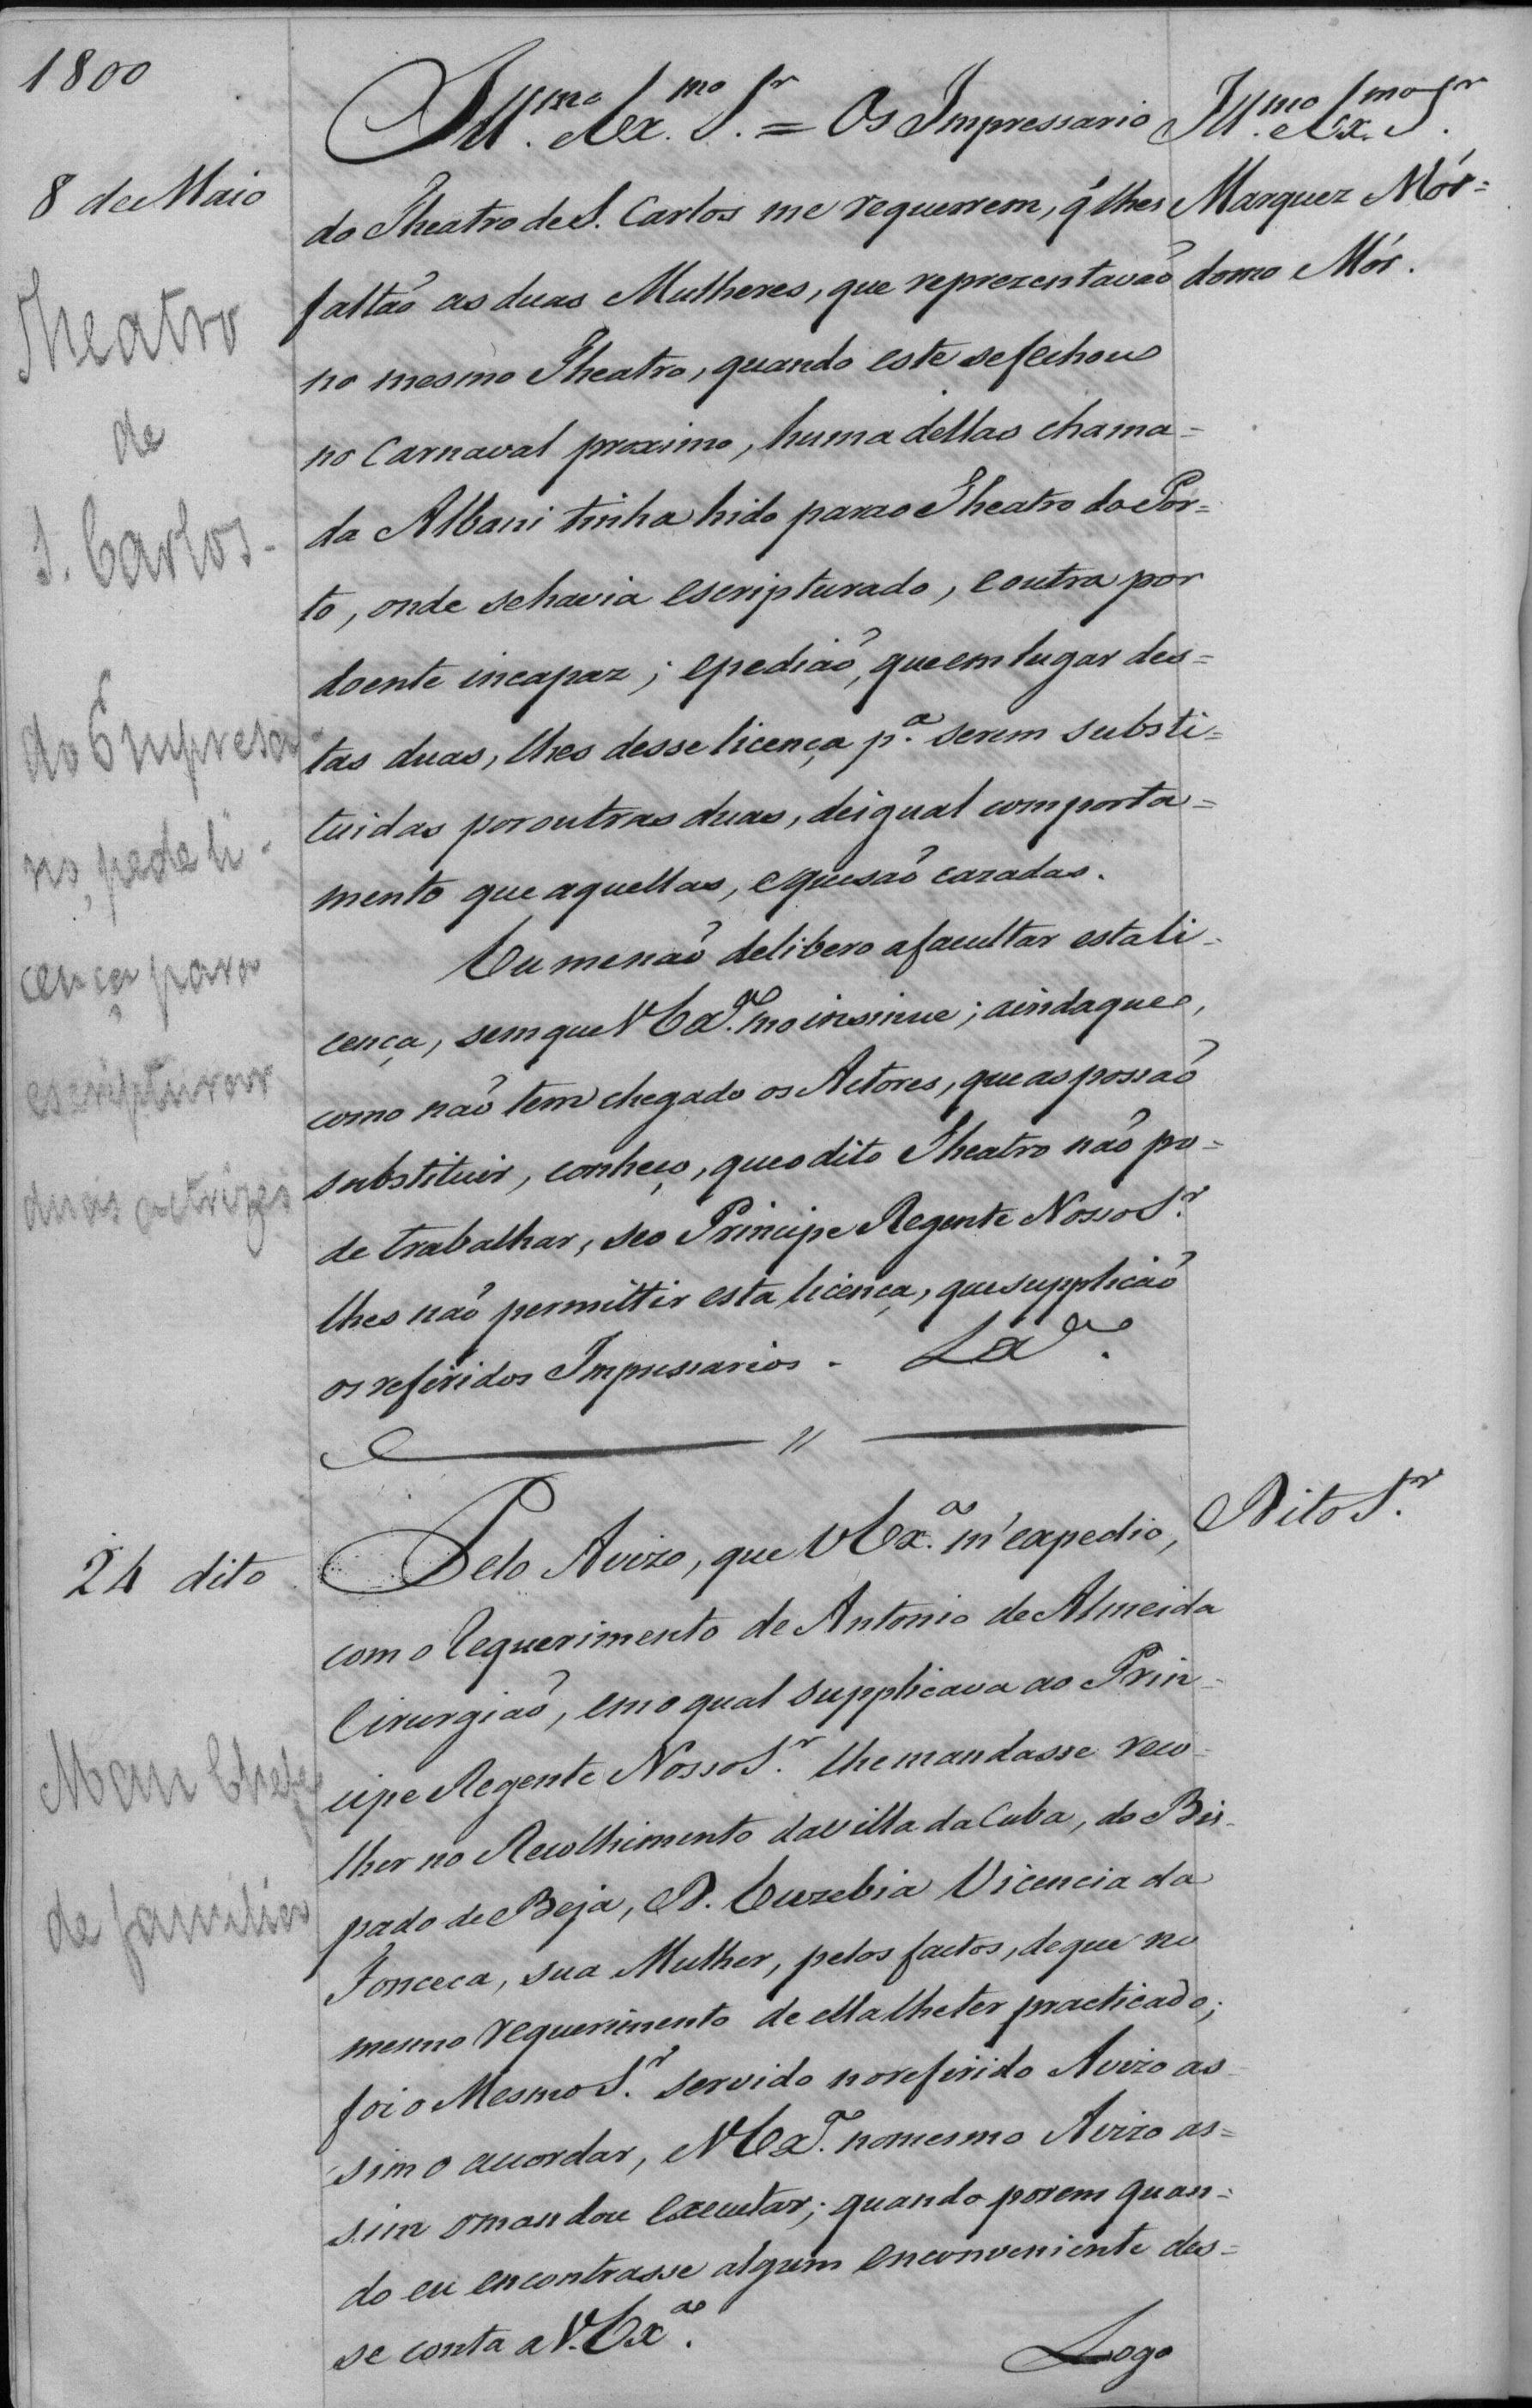 1800
8 de Maio
Theatro
de
S. Carlos -
do Empresa-
rio, pede li-
cença para
escripturar
duas actrizes
Ill.mo e Ex.mo S.r = Os Impressario
do Theatro de S. Carlos me requerrem, q̃ lhes
faltaõ as duas Mulheres, que reprezentavaõ
no mesmo Theatro, quando este se fechou
no Carnaval proximo, huma dellas chama=
da Albani tinha hido para o Theatro do Por=
to, onde se havia escripturado, e outra por
doente incapaz; e pediaõ, que em lugar des=
tas duas, lhes desse licença p.a serem substi=
tuidas por outras duas, de igual comporta=
mento que aquellas, e que saõ cazadas.
Eu me naõ delibero a facultar esta li-
cença, sem que V Ex.a mo insinue; ainda que,
como naõ tem chegado os Actores, que as possaõ
substituir, conheço, que o dito Theatro naõ po-
de trabalhar, se o Principe Regente Nosso S.r
lhes naõ permittir esta licença, que supplicaõ
os referidos Impressarios. - L.a
//
Ill.mo e Ex.mo S.r
Marquez Mór=
domo Mór.
24 dito
Mau Chefe
de familia
Pelo Avizo, que V Ex.a m'expedio,
com o Requerimento de Antonio de Almeida
Cirurgiaõ, em o qual supplicava ao Prin-
cipe Regente Nosso S.r lhe mandasse reco-
lher no Recolhimento da villa da Cuba, do Bis-
pado de Beja, D. Euzebia Vicencia da
Fonceca, sua Mulher, pelos factos, de que no
mesmo requerimento de ella lhe ter practicado;
foi o Mesmo S.r servido no referido Avizo as-
sim o acordar, e V Ex.a no mesmo Avizo as=
sim o mandou executar; quando porem quan=
do eu encontrasse algum enconveniente des=
se conta a V. Ex.a
Logo
Dito S.r